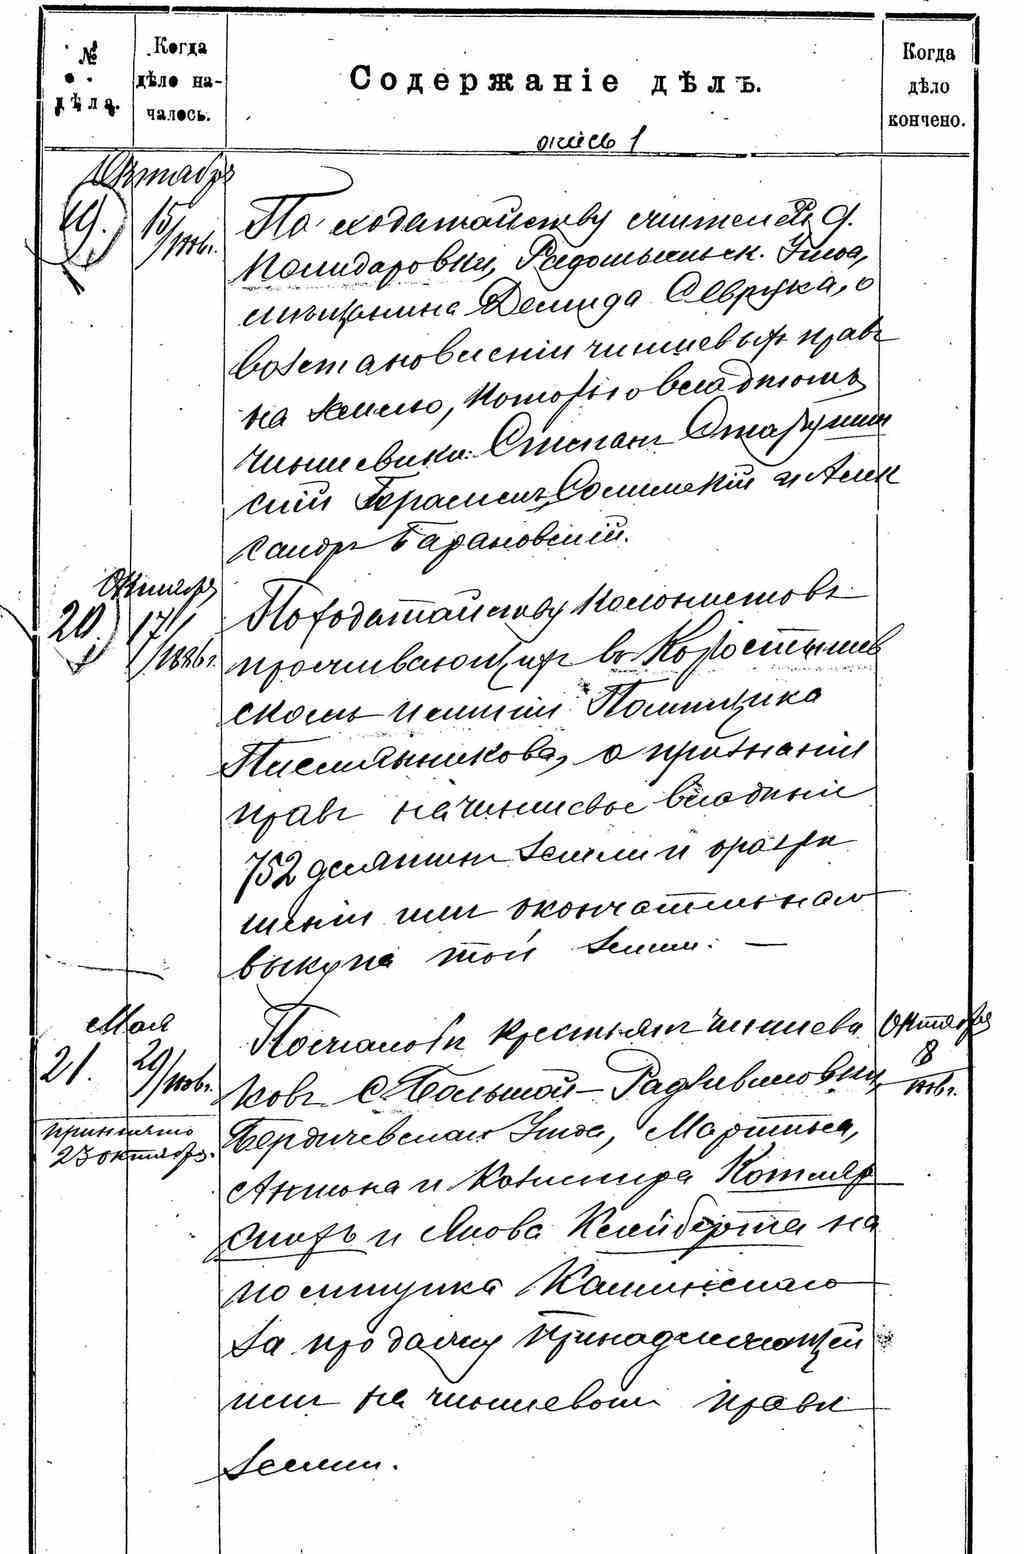 №
дѣла.
Когда
дѣло на-
чалось.
Содержаніе дѣлъ.
Когда
дѣло
кончено.
опись 1
Октябрь
19.
15/1886г.
По ходатайству жителей д.
Помидаровки, Радомысльск. Уѣзда,
мѣщанина Демида Севрука, о
возстановленіи чиншевыхъ правъ
на землю, которою владѣютъ
чиншевики: Степанъ
скій Герасимъ и Алек
сандръ Барановскій.
Октября
20.
17/1886г.
По ходатайству колонистовъ
проживающихъ въ Коростышев
скомъ имѣніи Помѣщика
о признаніи
правъ на чиншевое владѣніе
752 десятинъ земли и о разрѣ
шеніи имъ окончательнаго
выкупа той земли. —
Мая
21.
29/1886г.
принято
23 октября.
По жалобѣ крестьянъ чиншеви
ковъ с. Большой-Радзивиловки,
Бердичевскаго Уѣзда, Мартына,
Антона и Казимира Котляр
скихъ и Якова Клейберта на
помѣщика
за продажу принадлежащей
имъ на чиншевомъ правѣ
земли.
Октября
8
1886г.